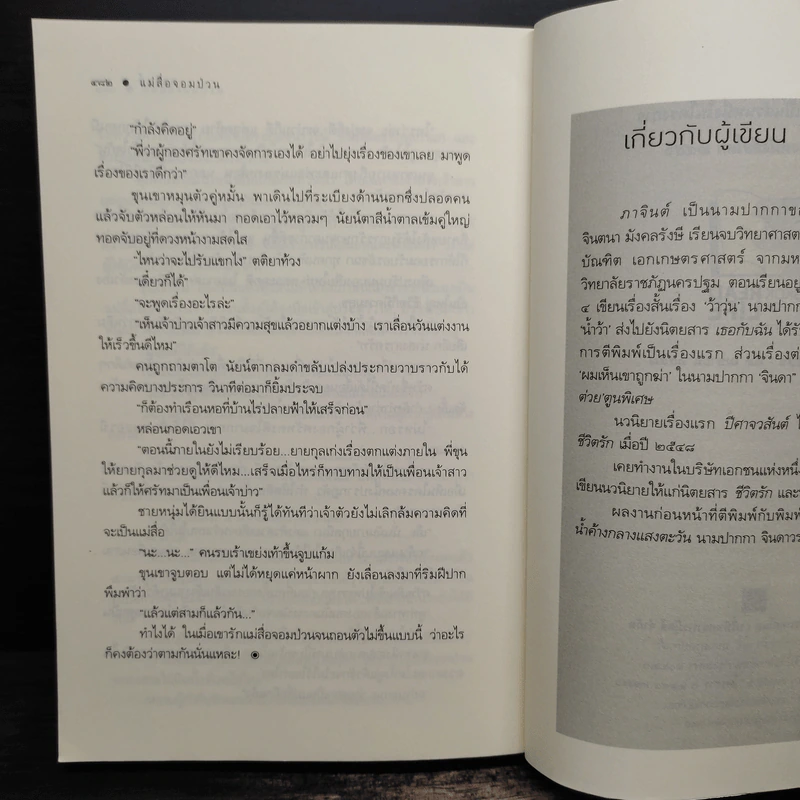 ๔๘๒ ● แม่สื่อจอมป่วน
"กำลังคิดอยู่"
"พี่ว่าผู้กองศรัทเขาคงจัดการเองได้ อย่าไปยุ่งเรื่องของเขาเลย มาพูด
เรื่องของเราดีกว่า"
ขุนเขาหมุนตัวคู่หมั้น พาเดินไปที่ระเบียงด้านนอกซึ่งปลอดคน
แล้วจับตัวหล่อนให้หันมา กอดเอาไว้หลวมๆ นัยน์ตาสีน้ำตาลเข้มคู่ใหญ่
ทอดจับอยู่ที่ดวงหน้างามสดใส
"ไหนว่าจะไปรับแขกไง" ตติยาท้วง
"เดี๋ยวก็ได้"
"จะพูดเรื่องอะไรล่ะ"
"เห็นเจ้าบ่าวเจ้าสาวมีความสุขแล้วอยากแต่งบ้าง เราเลื่อนวันแต่งงาน
ให้เร็วขึ้นดีไหม"
คนถูกถามตาโต นัยน์ตากลมดำขลับเปล่งประกายวาบราวกับได้
ความคิดบางประการ วินาทีต่อมาก็ยิ้มประจบ
"ก็ต้องทำเรือนหอที่บ้านไร่ปลายฟ้าให้เสร็จก่อน"
หล่อนกอดเอวเขา
"ตอนนี้ภายในยังไม่เรียบร้อย...ยายกุลเก่งเรื่องตกแต่งภายใน พี่ขุน
ให้ยายกุลมาช่วยดูให้ดีไหม...เสร็จเมื่อไหร่ก็ทาบทามให้เป็นเพื่อนเจ้าสาว
แล้วก็ให้ศรัทมาเป็นเพื่อนเจ้าบ่าว"
ชายหนุ่มได้ยินแบบนั้นก็รู้ได้ทันทีว่าเจ้าตัวยังไม่เลิกล้มความคิดที่
จะเป็นแม่สื่อ
"นะ...นะ..." คนรบเร้าเขย่งเท้าขึ้นจูบแก้ม
ขุนเขาจูบตอบ แต่ไม่ได้หยุดแค่หน้าผาก ยังเลื่อนลงมาที่ริมฝีปาก
พึมพำว่า
"แล้วแต่สามก็แล้วกัน..."
ทำไงได้ ในเมื่อเขารักแม่สื่อจอมป่วนจนถอนตัวไม่ขึ้นแบบนี้ ว่าอะไร
ก็คงต้องว่าตามกันนั่นแหละ! ◉
เกี่ยวกับผู้เขียน
ภาจินต์ เป็นนามปากกาขอ
จินตนา มังคลรังษี เรียนจบวิทยาศาสต
บัณฑิต เอกเกษตรศาสตร์ จากมห
วิทยาลัยราชภัฏนครปฐม ตอนเรียนอยู่
๔ เขียนเรื่องสั้นเรื่อง 'ว้าวุ่น' นามปาก
'น้ำว้า' ส่งไปยังนิตยสาร เธอกับฉัน ได้รั
การตีพิมพ์เป็นเรื่องแรก ส่วนเรื่องต่
'ผมเห็นเขาถูกฆ่า' ในนามปากกา 'จินดา'
ต่วย'ตูนพิเศษ
นวนิยายเรื่องแรก ปีศาจวสันต์
ชีวิตรัก เมื่อปี ๒๕๔๘
เคยทำงานในบริษัทเอกชนแห่งหนึ่
เขียนนวนิยายให้แก่นิตยสาร ชีวิตรัก และ
ผลงานก่อนหน้าที่ตีพิมพ์กับพิมพ์
น้ำค้างกลางแสงตะวัน นามปากกา จินดาวร